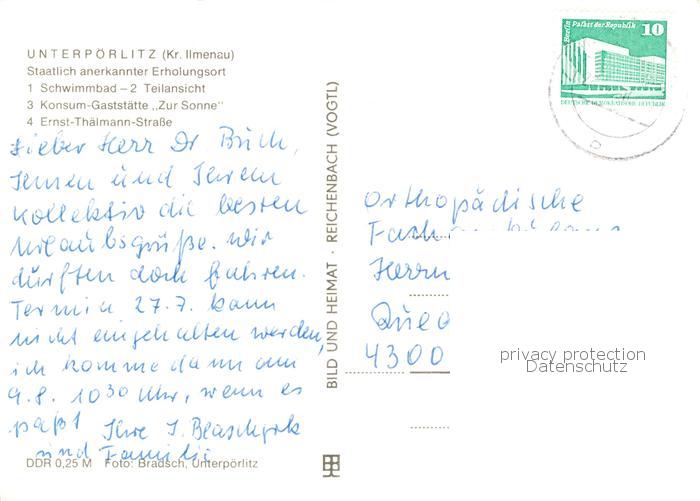 UNTERPÖRLITZ (Kr. Ilmenau)
Staatlich anerkannter Erholungsort
1 Schwimmbad – 2 Teilansicht
3 Konsum-Gaststätte „Zur Sonne“
4 Ernst-Thälmann-Straße
Lieber Herr Dr
Ihnen und Ihrem
Kollektiv die besten
Urlaubsgrüße. Wir
dürften doch fahren.
Termin 27.7. kann
nicht eingehalten werden,
ich komme dann am
9.8. 10³⁰ Uhr, wenn es
paßt Ihre I.
und Familie
DDR 0,25 M Foto: Bradsch, Unterpörlitz
BILD UND HEIMAT · REICHENBACH (VOGTL)
Berlin Palast der Republik 10
DEUTSCHE DEMOKRATISCHE REPUBLIK
Orthopädische
Herrn
4300
privacy protection
Datenschutz